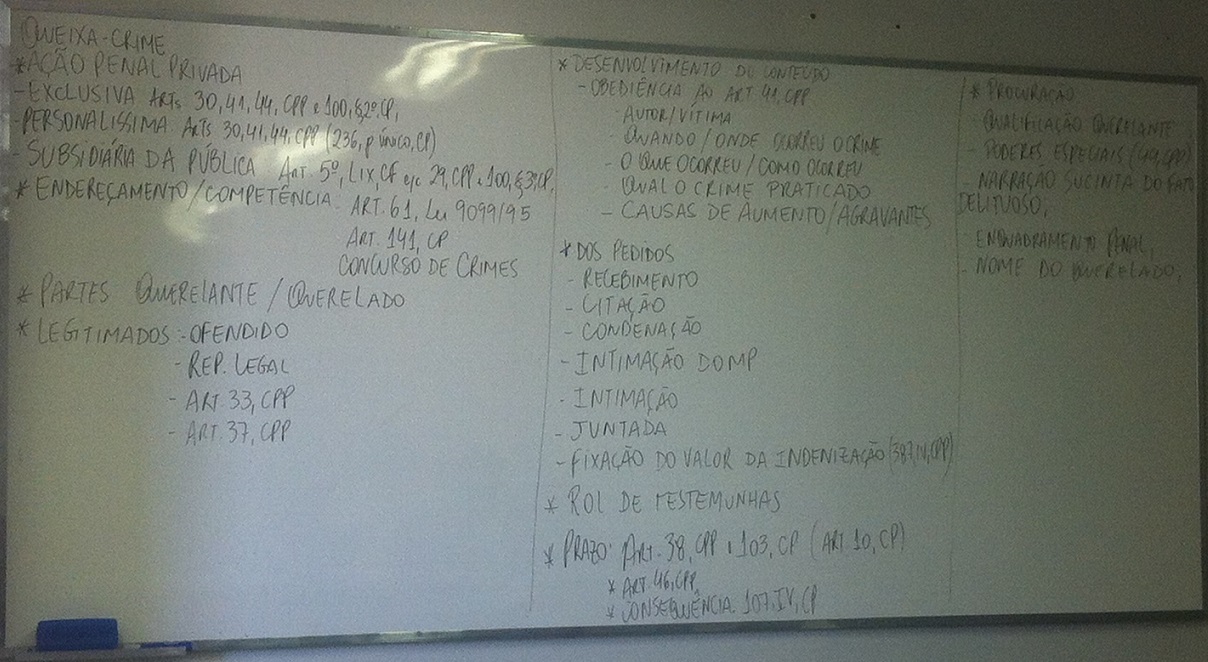 QUEIXA-CRIME
*AÇÃO PENAL PRIVADA
-EXCLUSIVA ARTs 30,41,44, CPP e 100,§2º,CP,
-PERSONALISSIMA ARTs 30,41,44, CPP (236, p único, CP)
- SUBSIDIÁRIA DA PÚBLICA ART. 5º, LIX, CF c/c 29, CPP e 100,§3º,CP,
* ENDEREÇAMENTO/COMPETÊNCIA - ART. 61, Lei 9099/95
ART. 141, CP
CONCURSO DE CRIMES
* PARTES QUERELANTE / QUERELADO
* LEGITIMADOS - OFENDIDO
- REP. LEGAL
- ART. 33, CPP
- ART. 37, CPP
* DESENVOLVIMENTO DO CONTEÚDO
- OBEDIÊNCIA AO ART 41, CPP
- AUTOR/VÍTIMA
- QUANDO / ONDE OCORREU O CRIME
- O QUE OCORREU / COMO OCORREU
- QUAL O CRIME PRATICADO
- CAUSAS DE AUMENTO/AGRAVANTES
* DOS PEDIDOS
- RECEBIMENTO
- CITAÇÃO
- CONDENAÇÃO
- INTIMAÇÃO DO MP
- INTIMAÇÃO
- JUNTADA
- FIXAÇÃO DO VALOR DA INDENIZAÇÃO (387, IV, CPP)
* ROL DE TESTEMUNHAS
* PRAZO: ART. 38, CPP e 103, CP (ART. 10, CP)
* ART. 46, CPP,
* CONSEQUÊNCIA: 107, IV, CP
* PROCURAÇÃO
- QUALIFICAÇÃO QUERELANTE
- PODERES ESPECIAIS (44, CPP)
- NARRAÇÃO SUCINTA DO FATO
DELITUOSO,
- ENQUADRAMENTO PENAL,
- NOME DO QUERELADO,